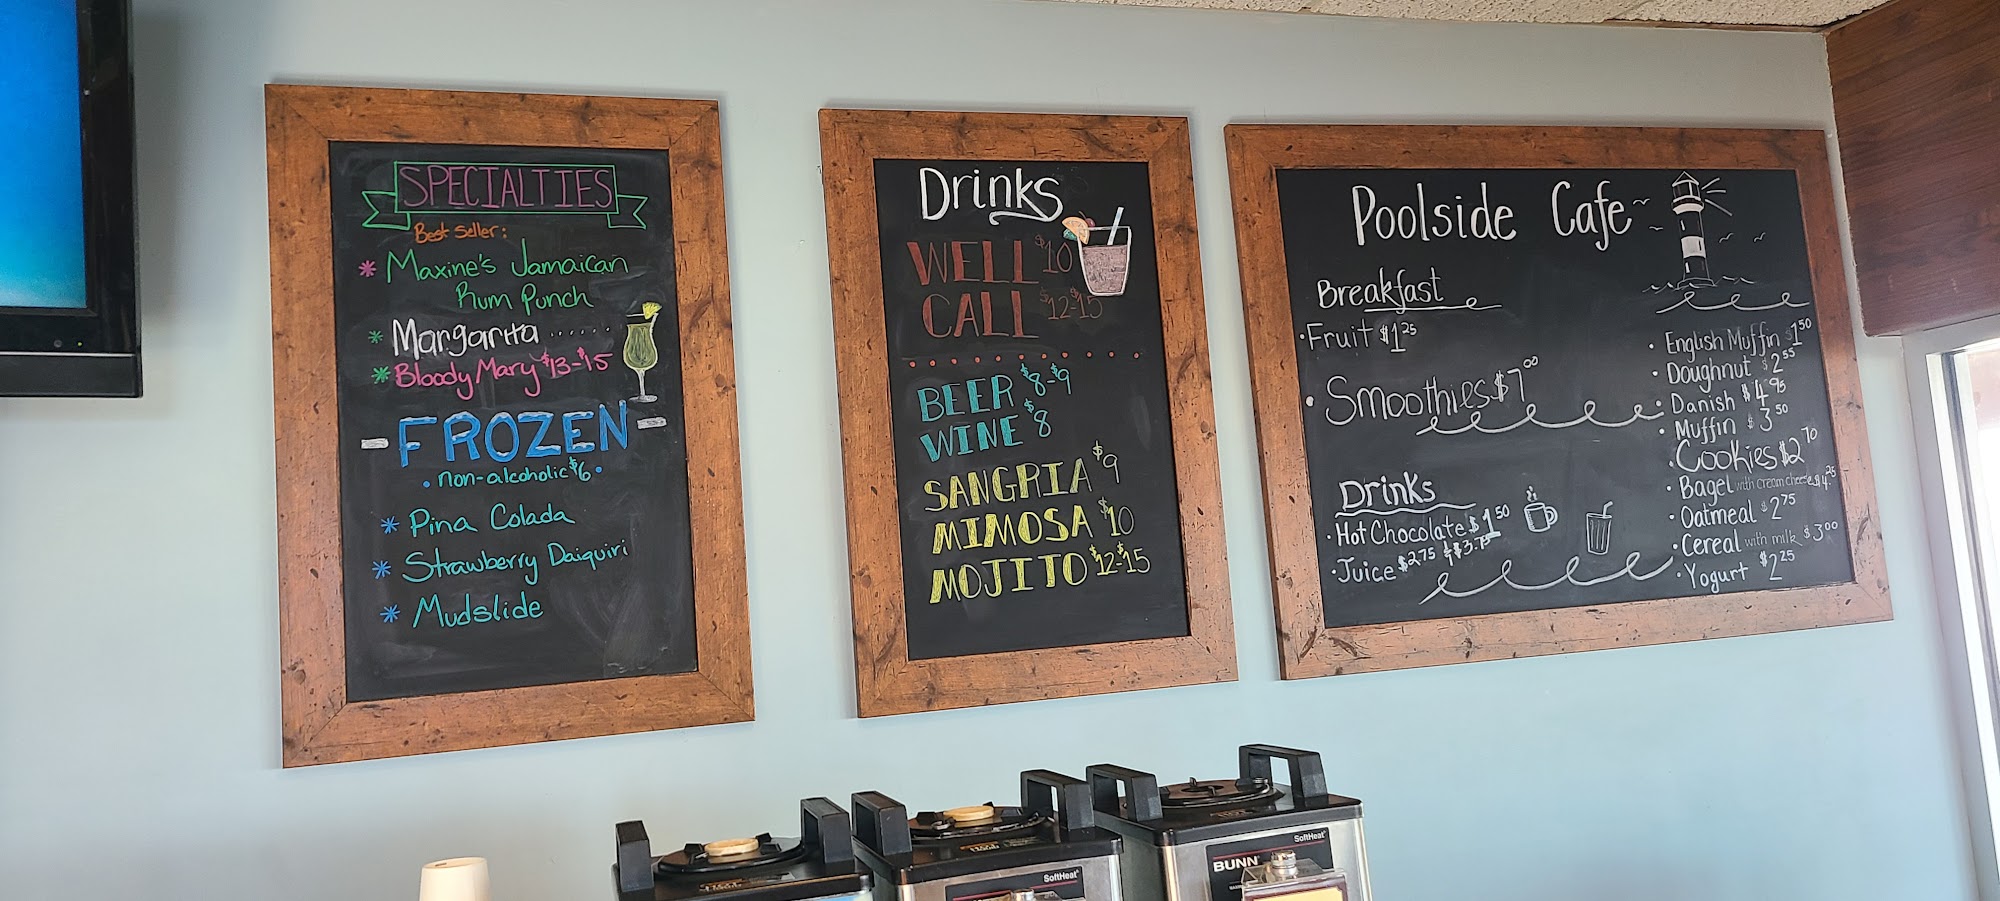 SPECIALTIES
Best Seller:
* Maxine's Jamaican
Rum Punch
* Margarita ......
* Bloody Mary $13-$15
- FROZEN -
• non-alcoholic $6 •
* Pina Colada
* Strawberry Daiquiri
* Mudslide
Drinks
WELL $10
CALL $12-$15
BEER $8-$9
WINE $8
SANGRIA $9
MIMOSA $10
MOJITO $12-$15
Poolside Cafe
Breakfast
• Fruit $1.25
• Smoothies $7.00
Drinks
• Hot Chocolate $1.50
• Juice $2.75 $3.75
• English Muffin $1.50
• Doughnut $2.55
• Danish $4.95
• Muffin $3.50
• Cookies $2.70
• Bagel with cream cheese $4.25
• Oatmeal $2.75
• Cereal with milk $3.00
• Yogurt $2.25
SoftHeat
SoftHeat
BUNN